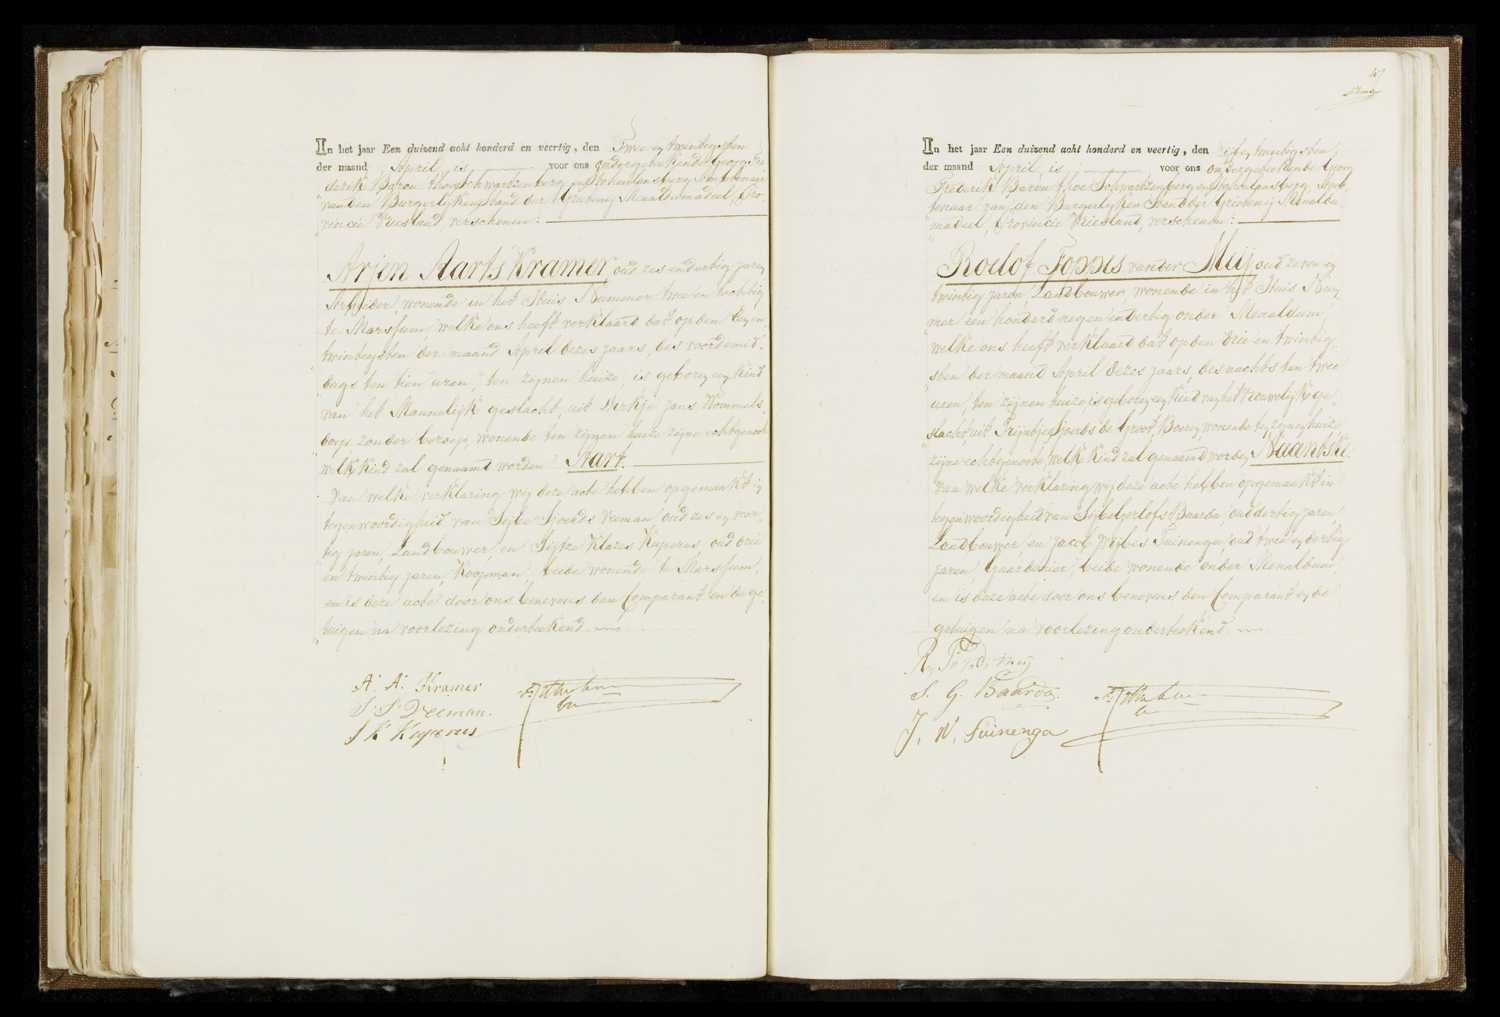 In het jaar Een duizend acht honderd en veertig, den Twee en twintigsten
der maand April, is voor ons ondergeteekende Georg Fre
derik Baron thoe Schwartzenberg en Hohenlansberg, Secretaris
van den Burgerlijken stand der Grietenij Menaldumadeel, Pro
vincie Vriesland, verschenen:
Arjen Aarts Kramer, oud zes en dertig jaren,
wonende in het Huis Nummer twee en tachtig
te Marssum, welke ons heeft verklaard dat op den een en
twintigsten der maand April dezes jaars, des voordemid-
dags ten tien uren, ten zijnen huize, is geboren een kind
van het Mannelijk geslacht, uit Dirkje Jans Wommels
dorp, zonder beroep, wonende ten zijnen huize zijne echtgenoote
welk kind zal genaamd worden Aart.
Van welke verklaring wij deze acte hebben opgemaakt in
tegenwoordigheid van Sijbe Sjoerds Veeman, oud zes en veer-
tig jaren, Landbouwer, en Sijtze Klazes Kuperus, oud drie
en twintig jaren, Koopman, beide wonende te Marssum,
en is deze acte door ons benevens den Comparant en de ge-
tuigen na voorlezing onderteekend
A. A. Kramer
S. S. Veeman.
S K Kuperus
47
In het jaar Een duizend acht honderd en veertig, den vijf en twintigsten
der maand April, is voor ons ondergeteekende Georg
Frederik Baron thoe Schwartzenberg en Hohenlansberg, Secre-
taris van den Burgerlijken Stand der Grietenij Menaldu-
madeel, Provincie Vriesland, verschenen:
Roelof Foppes van der Meij, oud zeven en
twintig jaren, Landbouwer, wonende in het Huis Num
mer een honderd negen en dertig onder Menaldum,
welke ons heeft verklaard dat op den drie en twintig-
sten der maand April dezes jaars, des nachts ten twee
uren, ten zijnen huize is geboren een kind van het Vrouwelijk ge-
slacht, uit Trijntje Sjoerds de Groot, Boerin, wonende ten zijnen huize
zijne echtgenoote, welk kind zal genaamd worden Naantske.
Van welke verklaring wij deze acte hebben opgemaakt in
tegenwoordigheid van Sijbe Gerlofs Baarda, oud dertig jaren,
Landbouwer, en Jacob Wijbes Tuinenga, oud twee en dertig
jaren, Gardenier, beide wonende onder Menaldum,
en is deze acte door ons benevens den Comparant en de
getuigen na voorlezing onderteekend
R. F. v. d. Meij
S. G. Baarda
J. W. Tuinenga